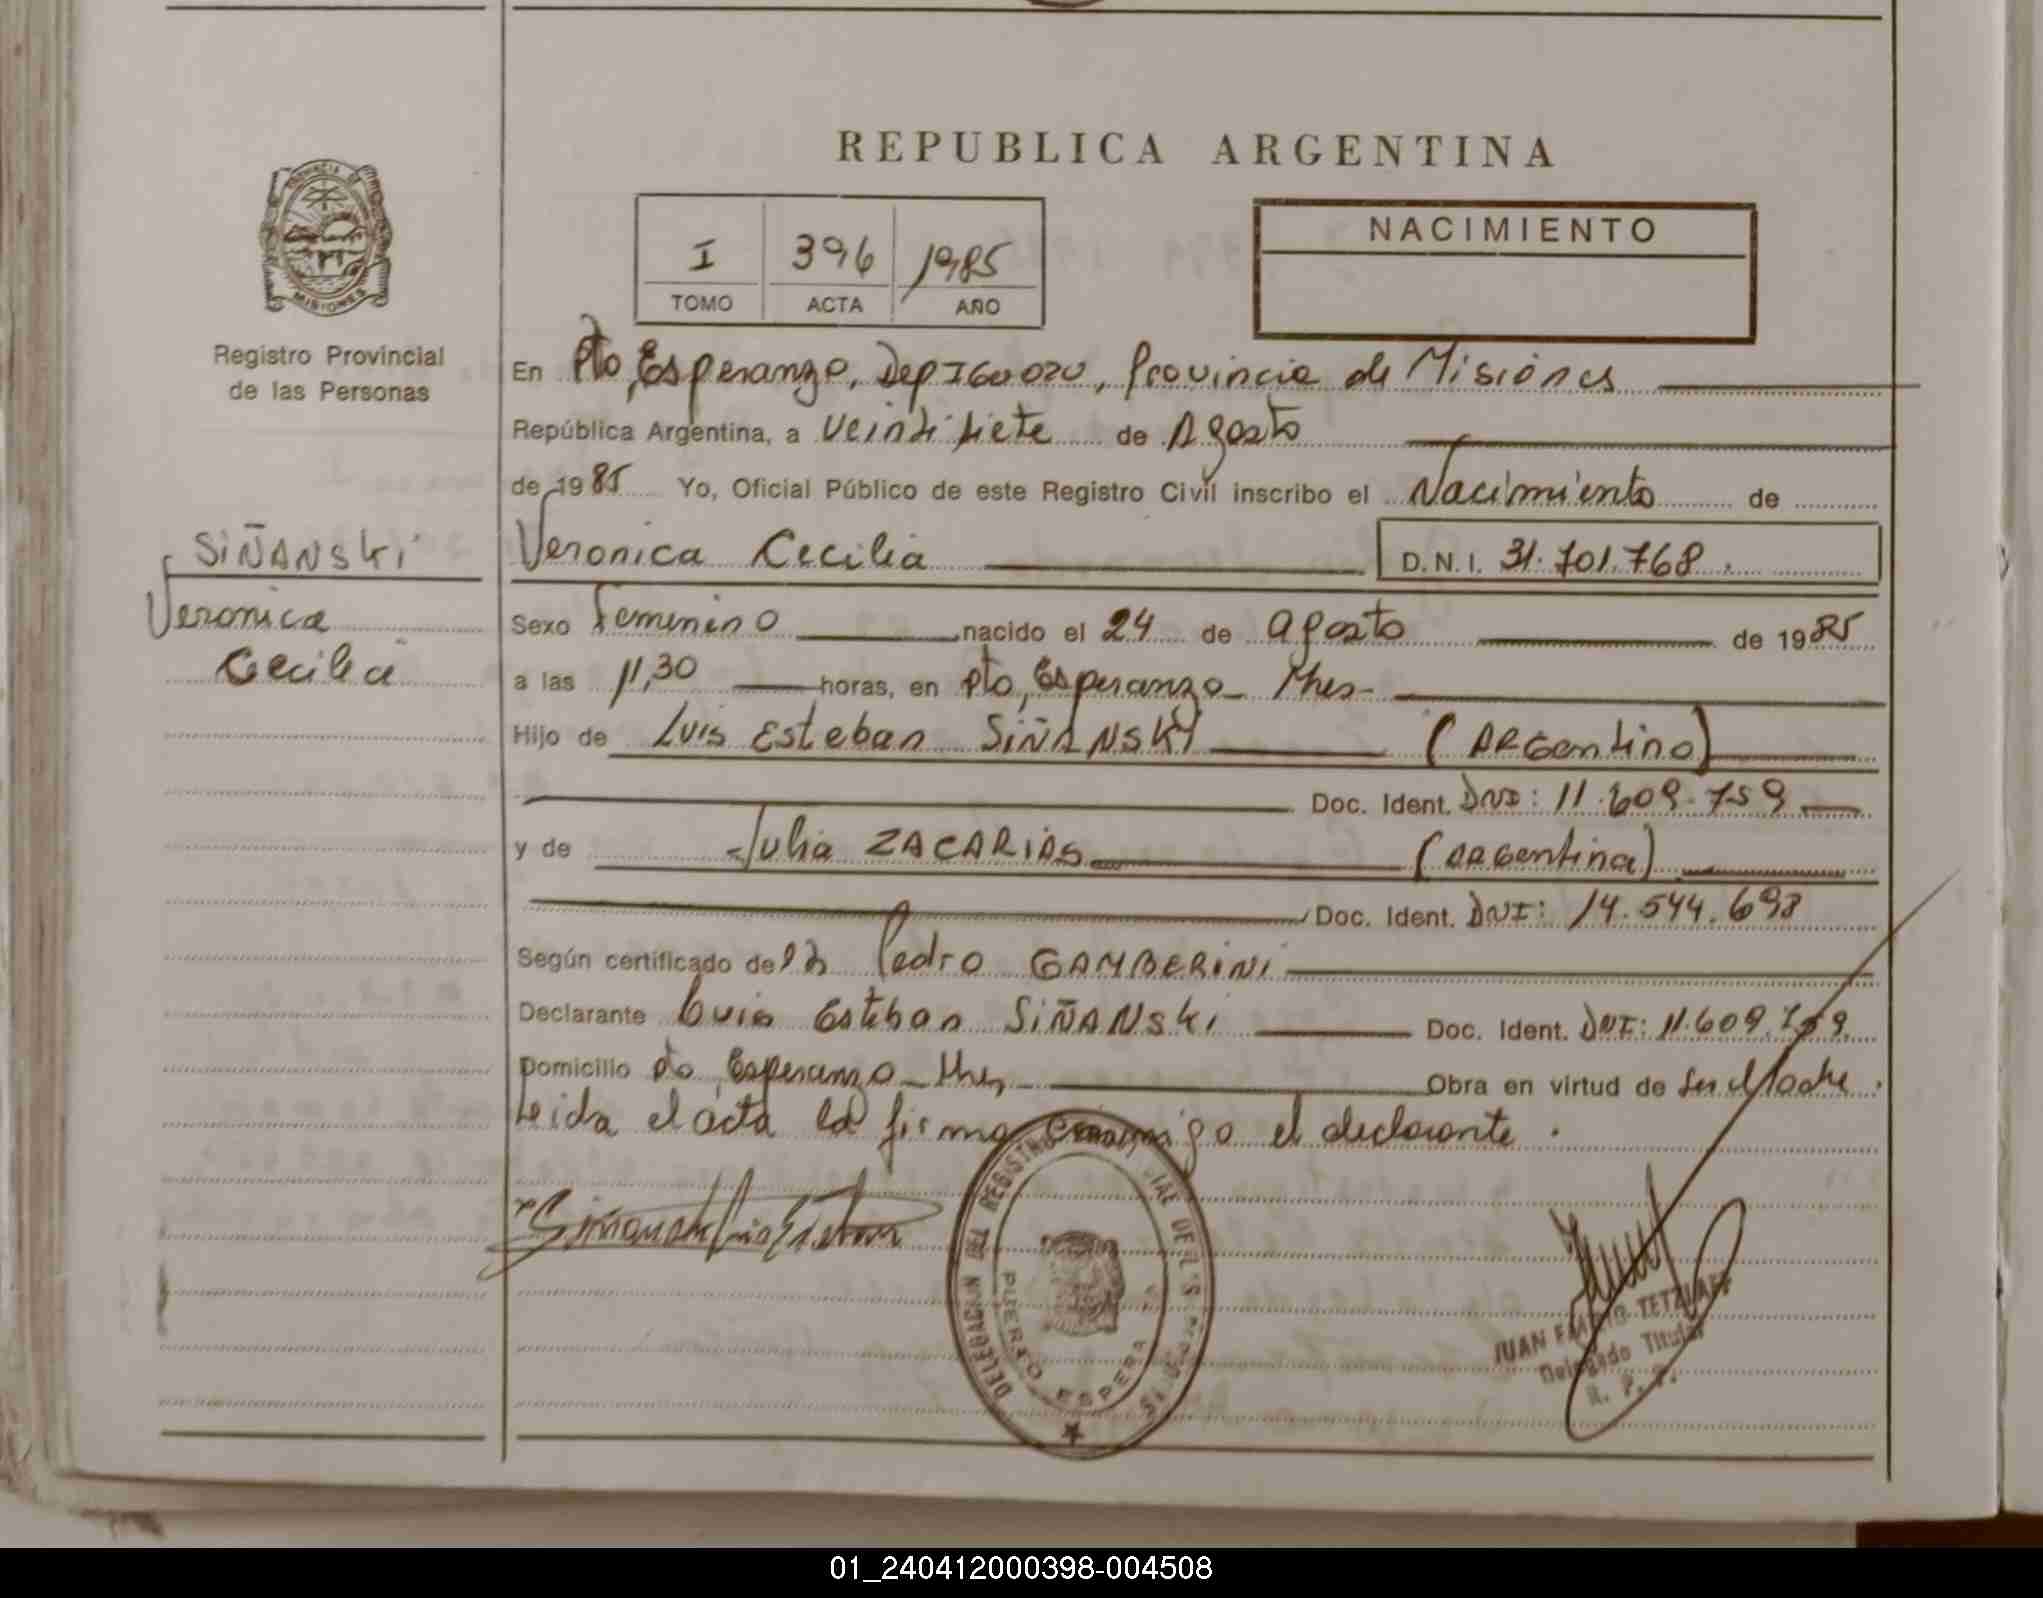 REPUBLICA ARGENTINA
PROVINCIA DE
MISIONES
Registro Provincial
de las Personas
I 396 1985
TOMO ACTA AÑO
NACIMIENTO
En Pto, Esperanza, Dep IGuazu, Provincia de Misiones
República Argentina, a veintisiete de Agosto
de 1985 Yo, Oficial Público de este Registro Civil inscribo el Nacimiento de
Veronica Cecilia D.N.I. 31.701.768.
SiÑANSki
Veronica
Cecilia
Sexo Femenino nacido el 24 de agosto de 1985
a las 11,30 horas, en Pto, Esperanza - Mnes -
Hijo de Luis Esteban SiÑANSKi (ARGentino)
Doc. Ident. DNI: 11.609.759
y de Julia ZACARIAS (ARGentina)
Doc. Ident. DNI: 14.544.698
Según certificado del Dr Pedro GAMBERINI
Declarante Luis Esteban SiÑANSki Doc. Ident. DNI: 11.609.759.
Domicilio Pto, Esperanza - Mnes - Obra en virtud de Ser Madre.
Leida el acta la firma conmigo el declarante.
DELEGACION DEL REGISTRO
PUERTO ESPERANZA
JUAN EMILIO TETZLAFF
Delegado Titular
R. P. P.
01_240412000398-004508